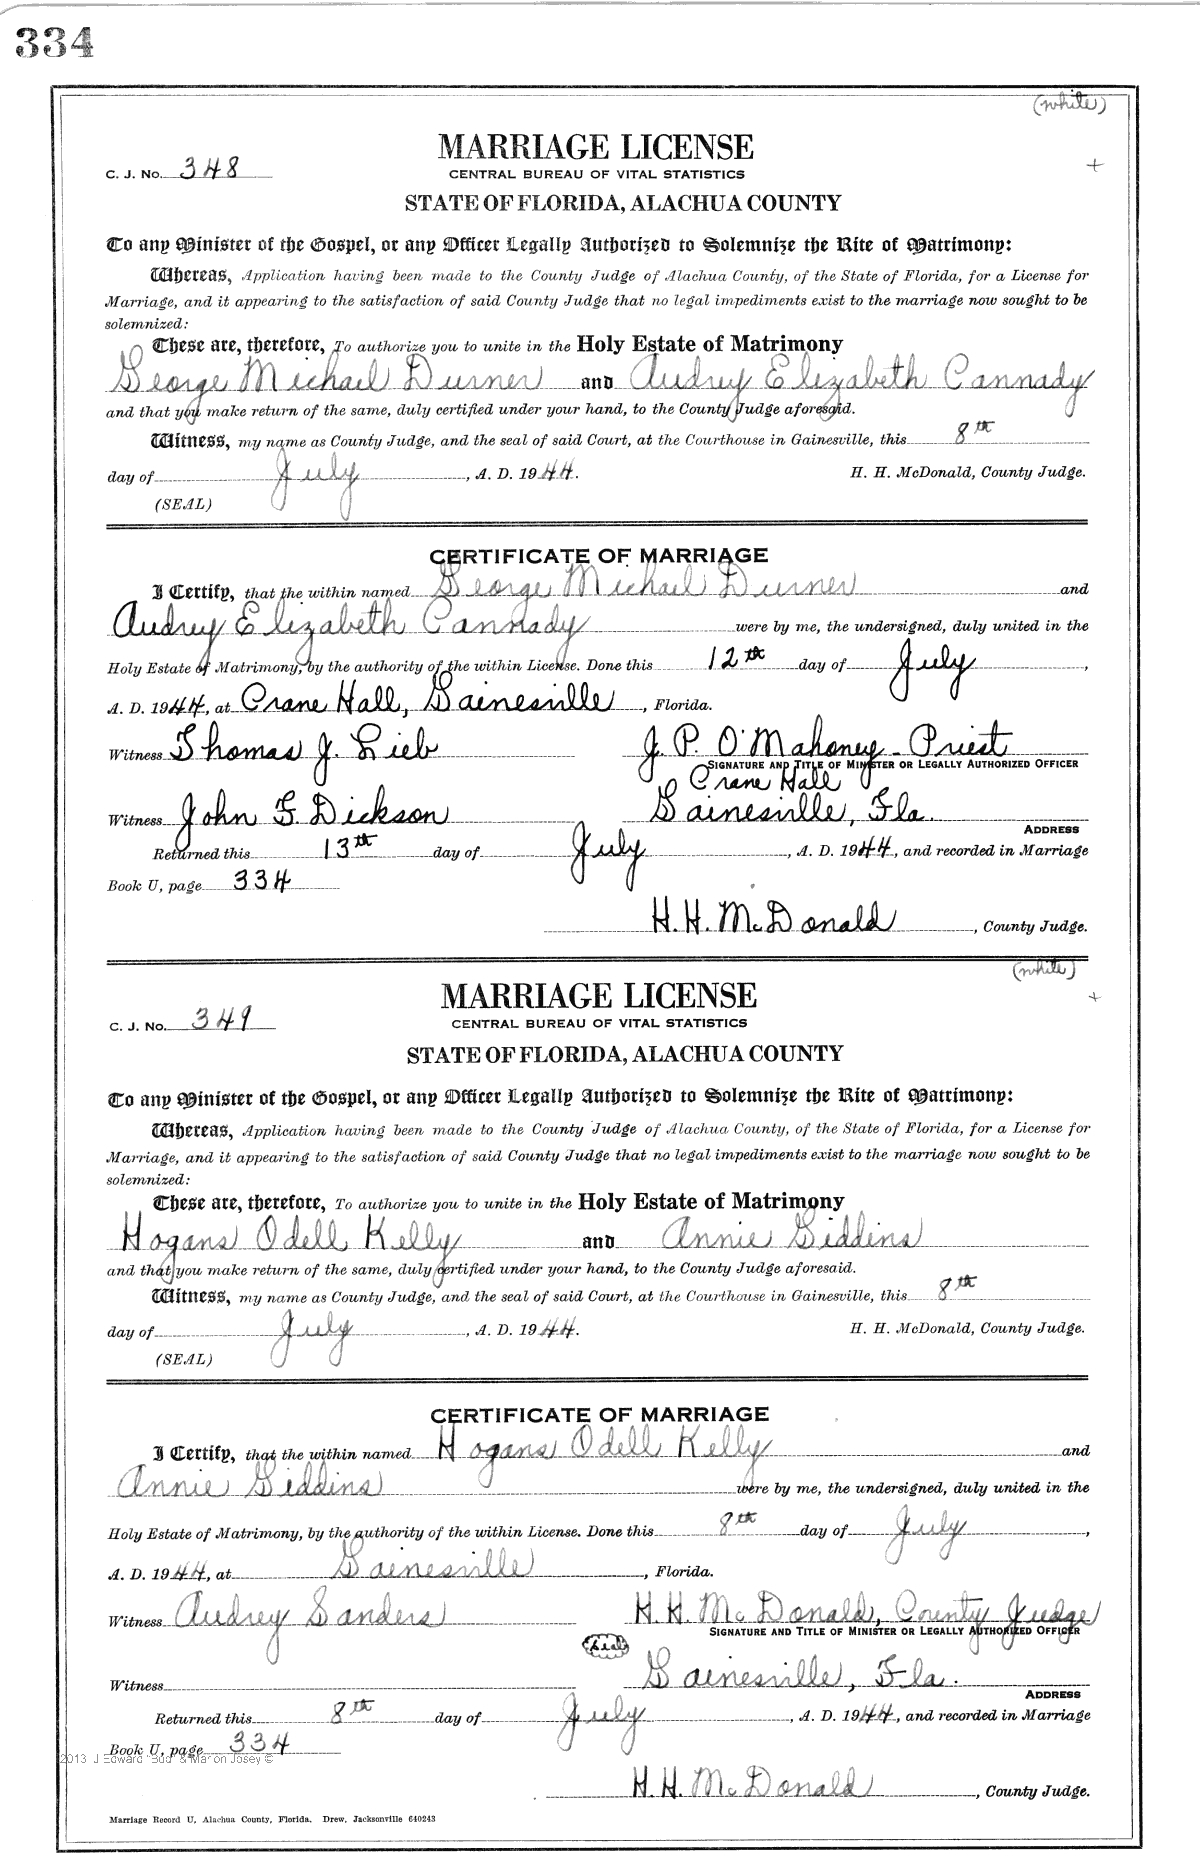 334
(white)
MARRIAGE LICENSE
C. J. No. 348
CENTRAL BUREAU OF VITAL STATISTICS
+
STATE OF FLORIDA, ALACHUA COUNTY
To any Minister of the Gospel, or any Officer Legally Authorized to Solemnize the Rite of Matrimony:
Whereas, Application having been made to the County Judge of Alachua County, of the State of Florida, for a License for
Marriage, and it appearing to the satisfaction of said County Judge that no legal impediments exist to the marriage now sought to be
solemnized:
These are, therefore, To authorize you to unite in the Holy Estate of Matrimony
George Michael Durner and Audrey Elizabeth Cannady
and that you make return of the same, duly certified under your hand, to the County Judge aforesaid.
Witness, my name as County Judge, and the seal of said Court, at the Courthouse in Gainesville, this 8th
day of July, A. D. 1944. H. H. McDonald, County Judge.
(SEAL)
CERTIFICATE OF MARRIAGE
I Certify, that the within named George Michael Durner and
Audrey Elizabeth Cannady were by me, the undersigned, duly united in the
Holy Estate of Matrimony, by the authority of the within License. Done this 12th day of July,
A. D. 1944, at Crane Hall, Gainesville, Florida.
Witness Thomas J. Lieb J. P. O'Mahoney - Priest
SIGNATURE AND TITLE OF MINISTER OR LEGALLY AUTHORIZED OFFICER
Crane Hall
Witness John F. Dickson Gainesville, Fla.
ADDRESS
Returned this 13th day of July, A. D. 1944, and recorded in Marriage
Book U, page 334
H. H. McDonald, County Judge.
(white)
MARRIAGE LICENSE
+
C. J. No. 349
CENTRAL BUREAU OF VITAL STATISTICS
STATE OF FLORIDA, ALACHUA COUNTY
To any Minister of the Gospel, or any Officer Legally Authorized to Solemnize the Rite of Matrimony:
Whereas, Application having been made to the County Judge of Alachua County, of the State of Florida, for a License for
Marriage, and it appearing to the satisfaction of said County Judge that no legal impediments exist to the marriage now sought to be
solemnized:
These are, therefore, To authorize you to unite in the Holy Estate of Matrimony
Hogans Odell Kelly and Annie Giddins
and that you make return of the same, duly certified under your hand, to the County Judge aforesaid.
Witness, my name as County Judge, and the seal of said Court, at the Courthouse in Gainesville, this 8th
day of July, A. D. 1944. H. H. McDonald, County Judge.
(SEAL)
CERTIFICATE OF MARRIAGE
I Certify, that the within named Hogans Odell Kelly and
Annie Giddins were by me, the undersigned, duly united in the
Holy Estate of Matrimony, by the authority of the within License. Done this 8th day of July,
A. D. 1944, at Gainesville, Florida.
Witness Audrey Sanders H. H. McDonald, County Judge
SIGNATURE AND TITLE OF MINISTER OR LEGALLY AUTHORIZED OFFICER
Seal
Gainesville, Fla.
Witness
ADDRESS
Returned this 8th day of July, A. D. 1944, and recorded in Marriage
Book U, page 334
2013 J Edward "Bud" & Marion Josey ©
H. H. McDonald, County Judge.
Marriage Record U, Alachua County, Florida. Drew, Jacksonville 640243